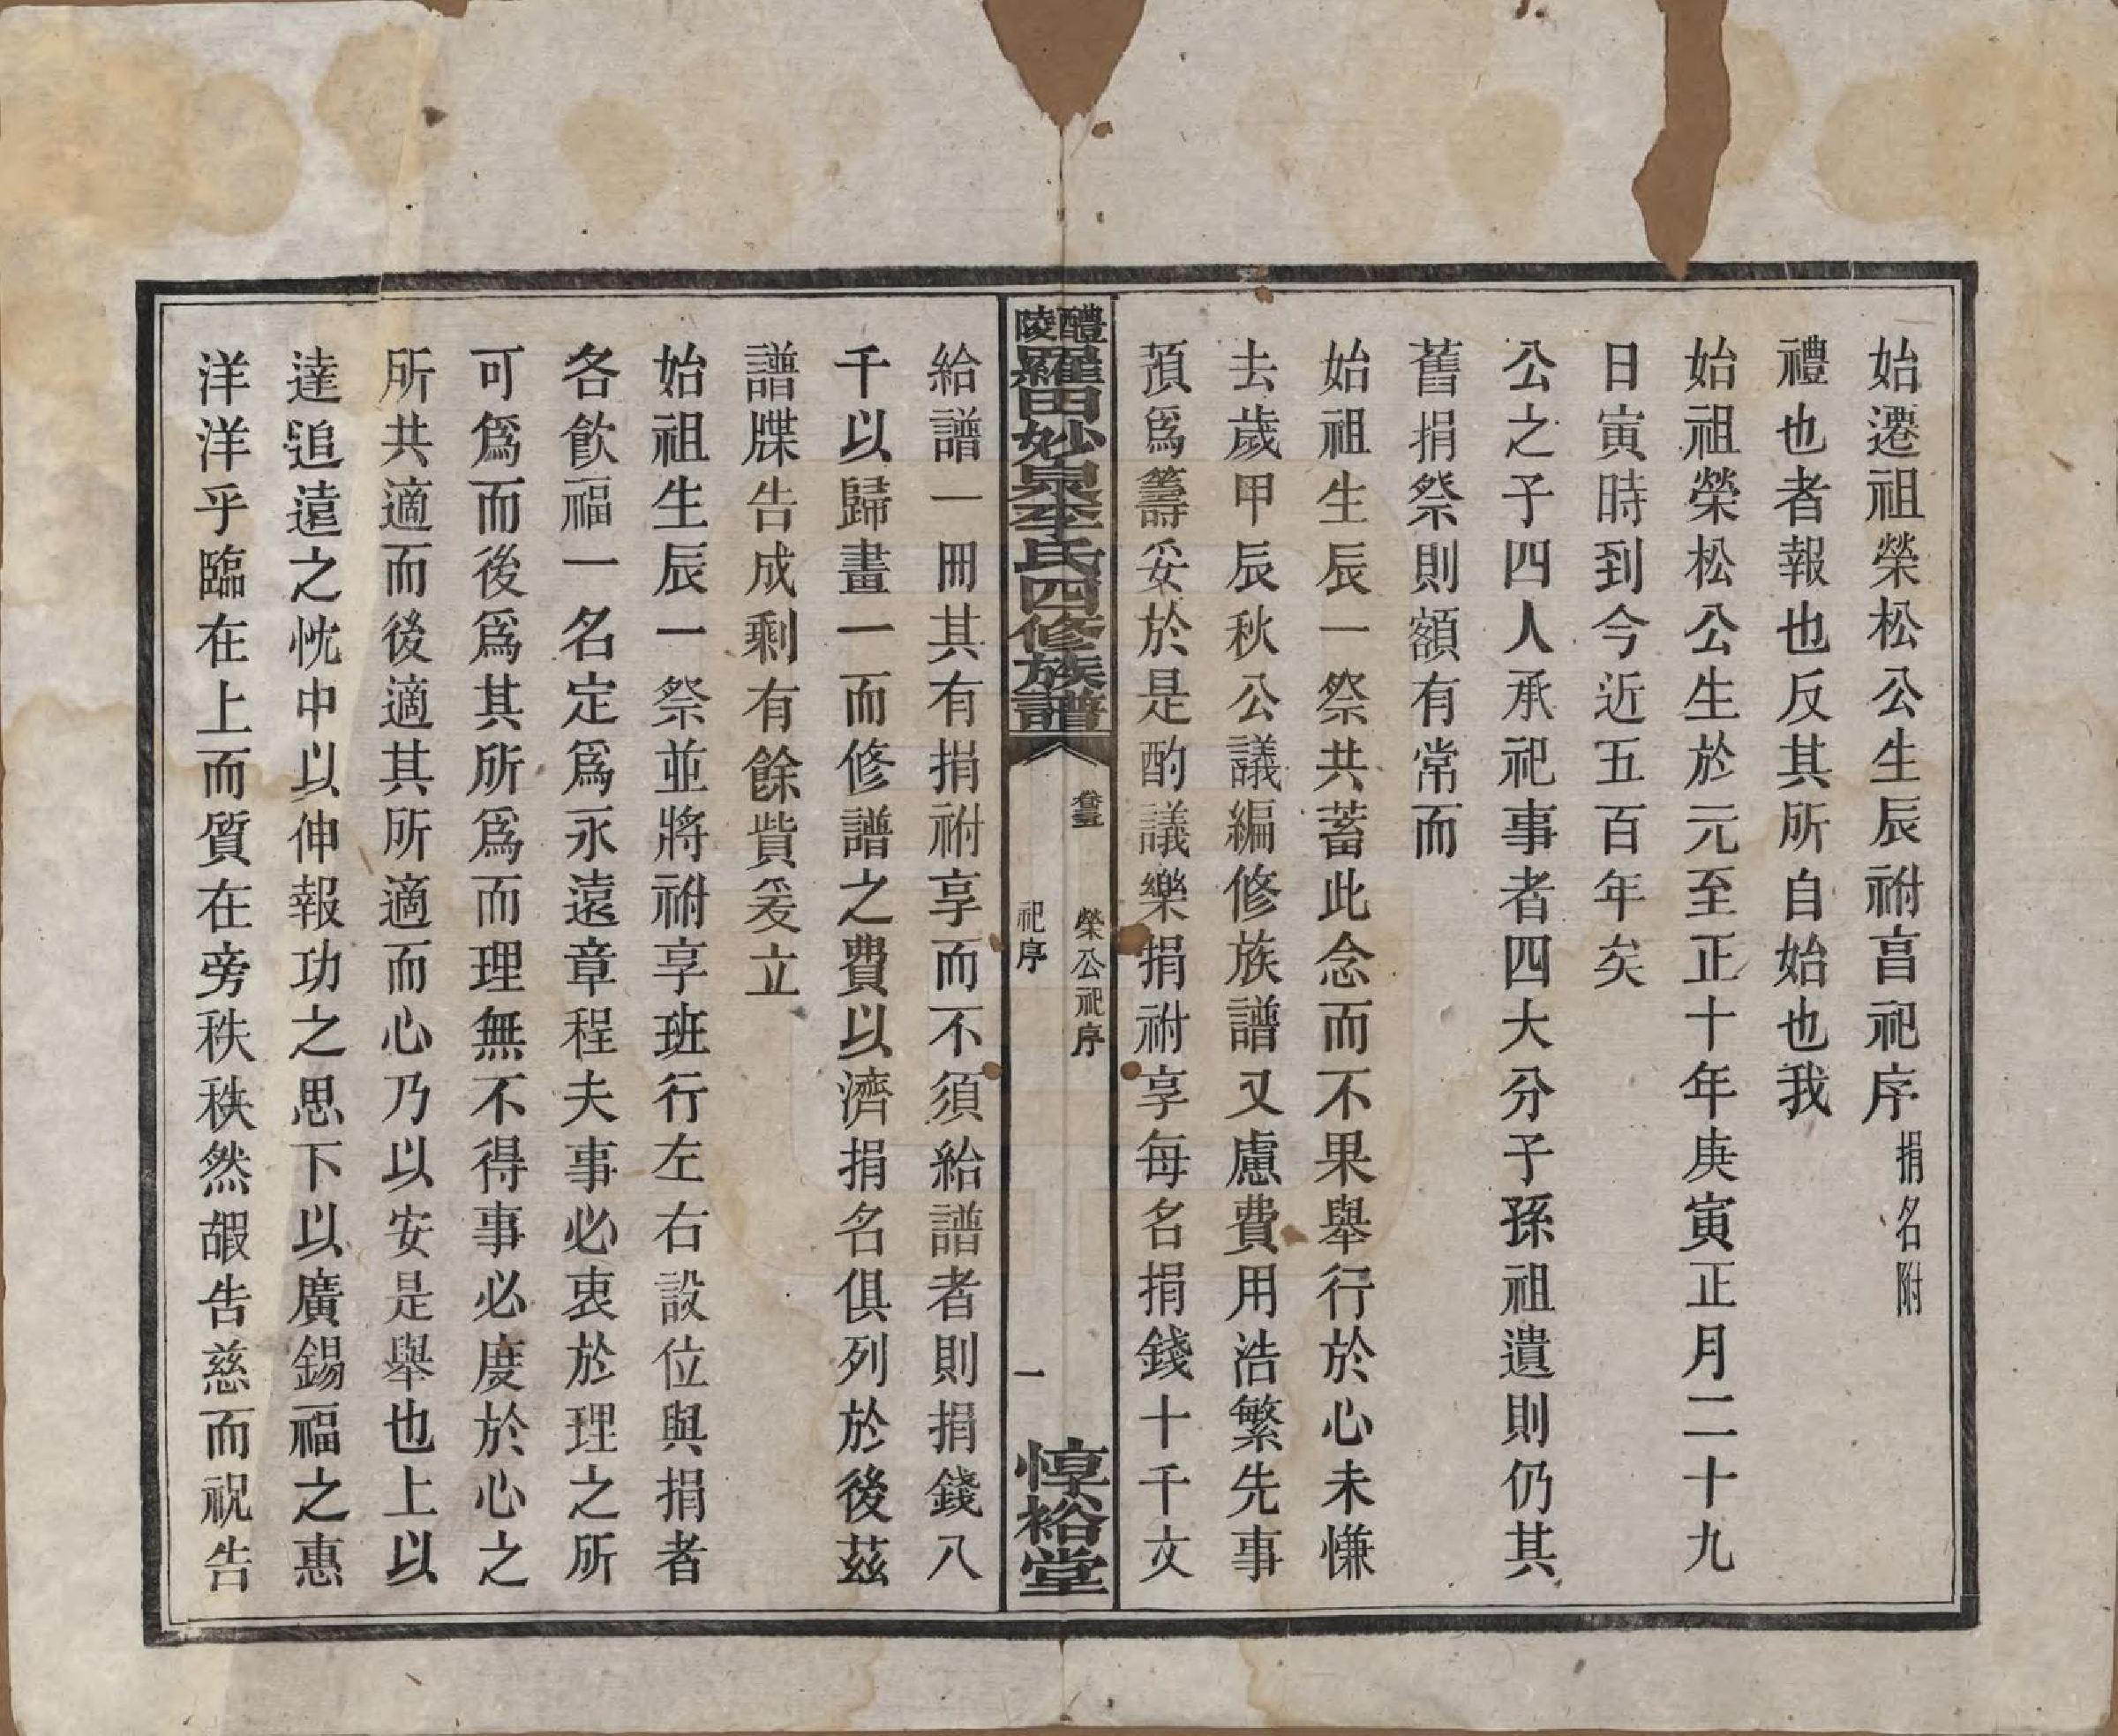 始遷祖榮松公生辰祔亯祀序捐名附
禮也者報也反其所自始也我
始祖榮松公生於元至正十年庚寅正月二十九
日寅時到今近五百年矣
公之子四人承祀事者四大分子孫祖遺則仍其
舊捐祭則額有常而
始祖生辰一祭共蓄此念而不果舉行於心未慊
去歲甲辰秋公議編修族譜又慮費用浩繁先事
預爲籌妥於是酌議樂捐祔享每名捐錢十千文
醴陵羅田妙泉李氏四修族譜
卷三
榮公祀序
祀序
一
惇裕堂
給譜一冊其有捐祔享而不須給譜者則捐錢八
千以歸畫一而修譜之費以濟捐名俱列於後茲
譜牒告成剩有餘貲爰立
始祖生辰一祭並將祔享班行左右設位與捐者
各飲福一名定爲永遠章程夫事必衷於理之所
可爲而後爲其所爲而理無不得事必度於心之
所共適而後適其所適而心乃以安是舉也上以
達追遠之忱中以伸報功之思下以廣錫福之惠
洋洋乎臨在上而質在旁秩秩然嘏告慈而祝告